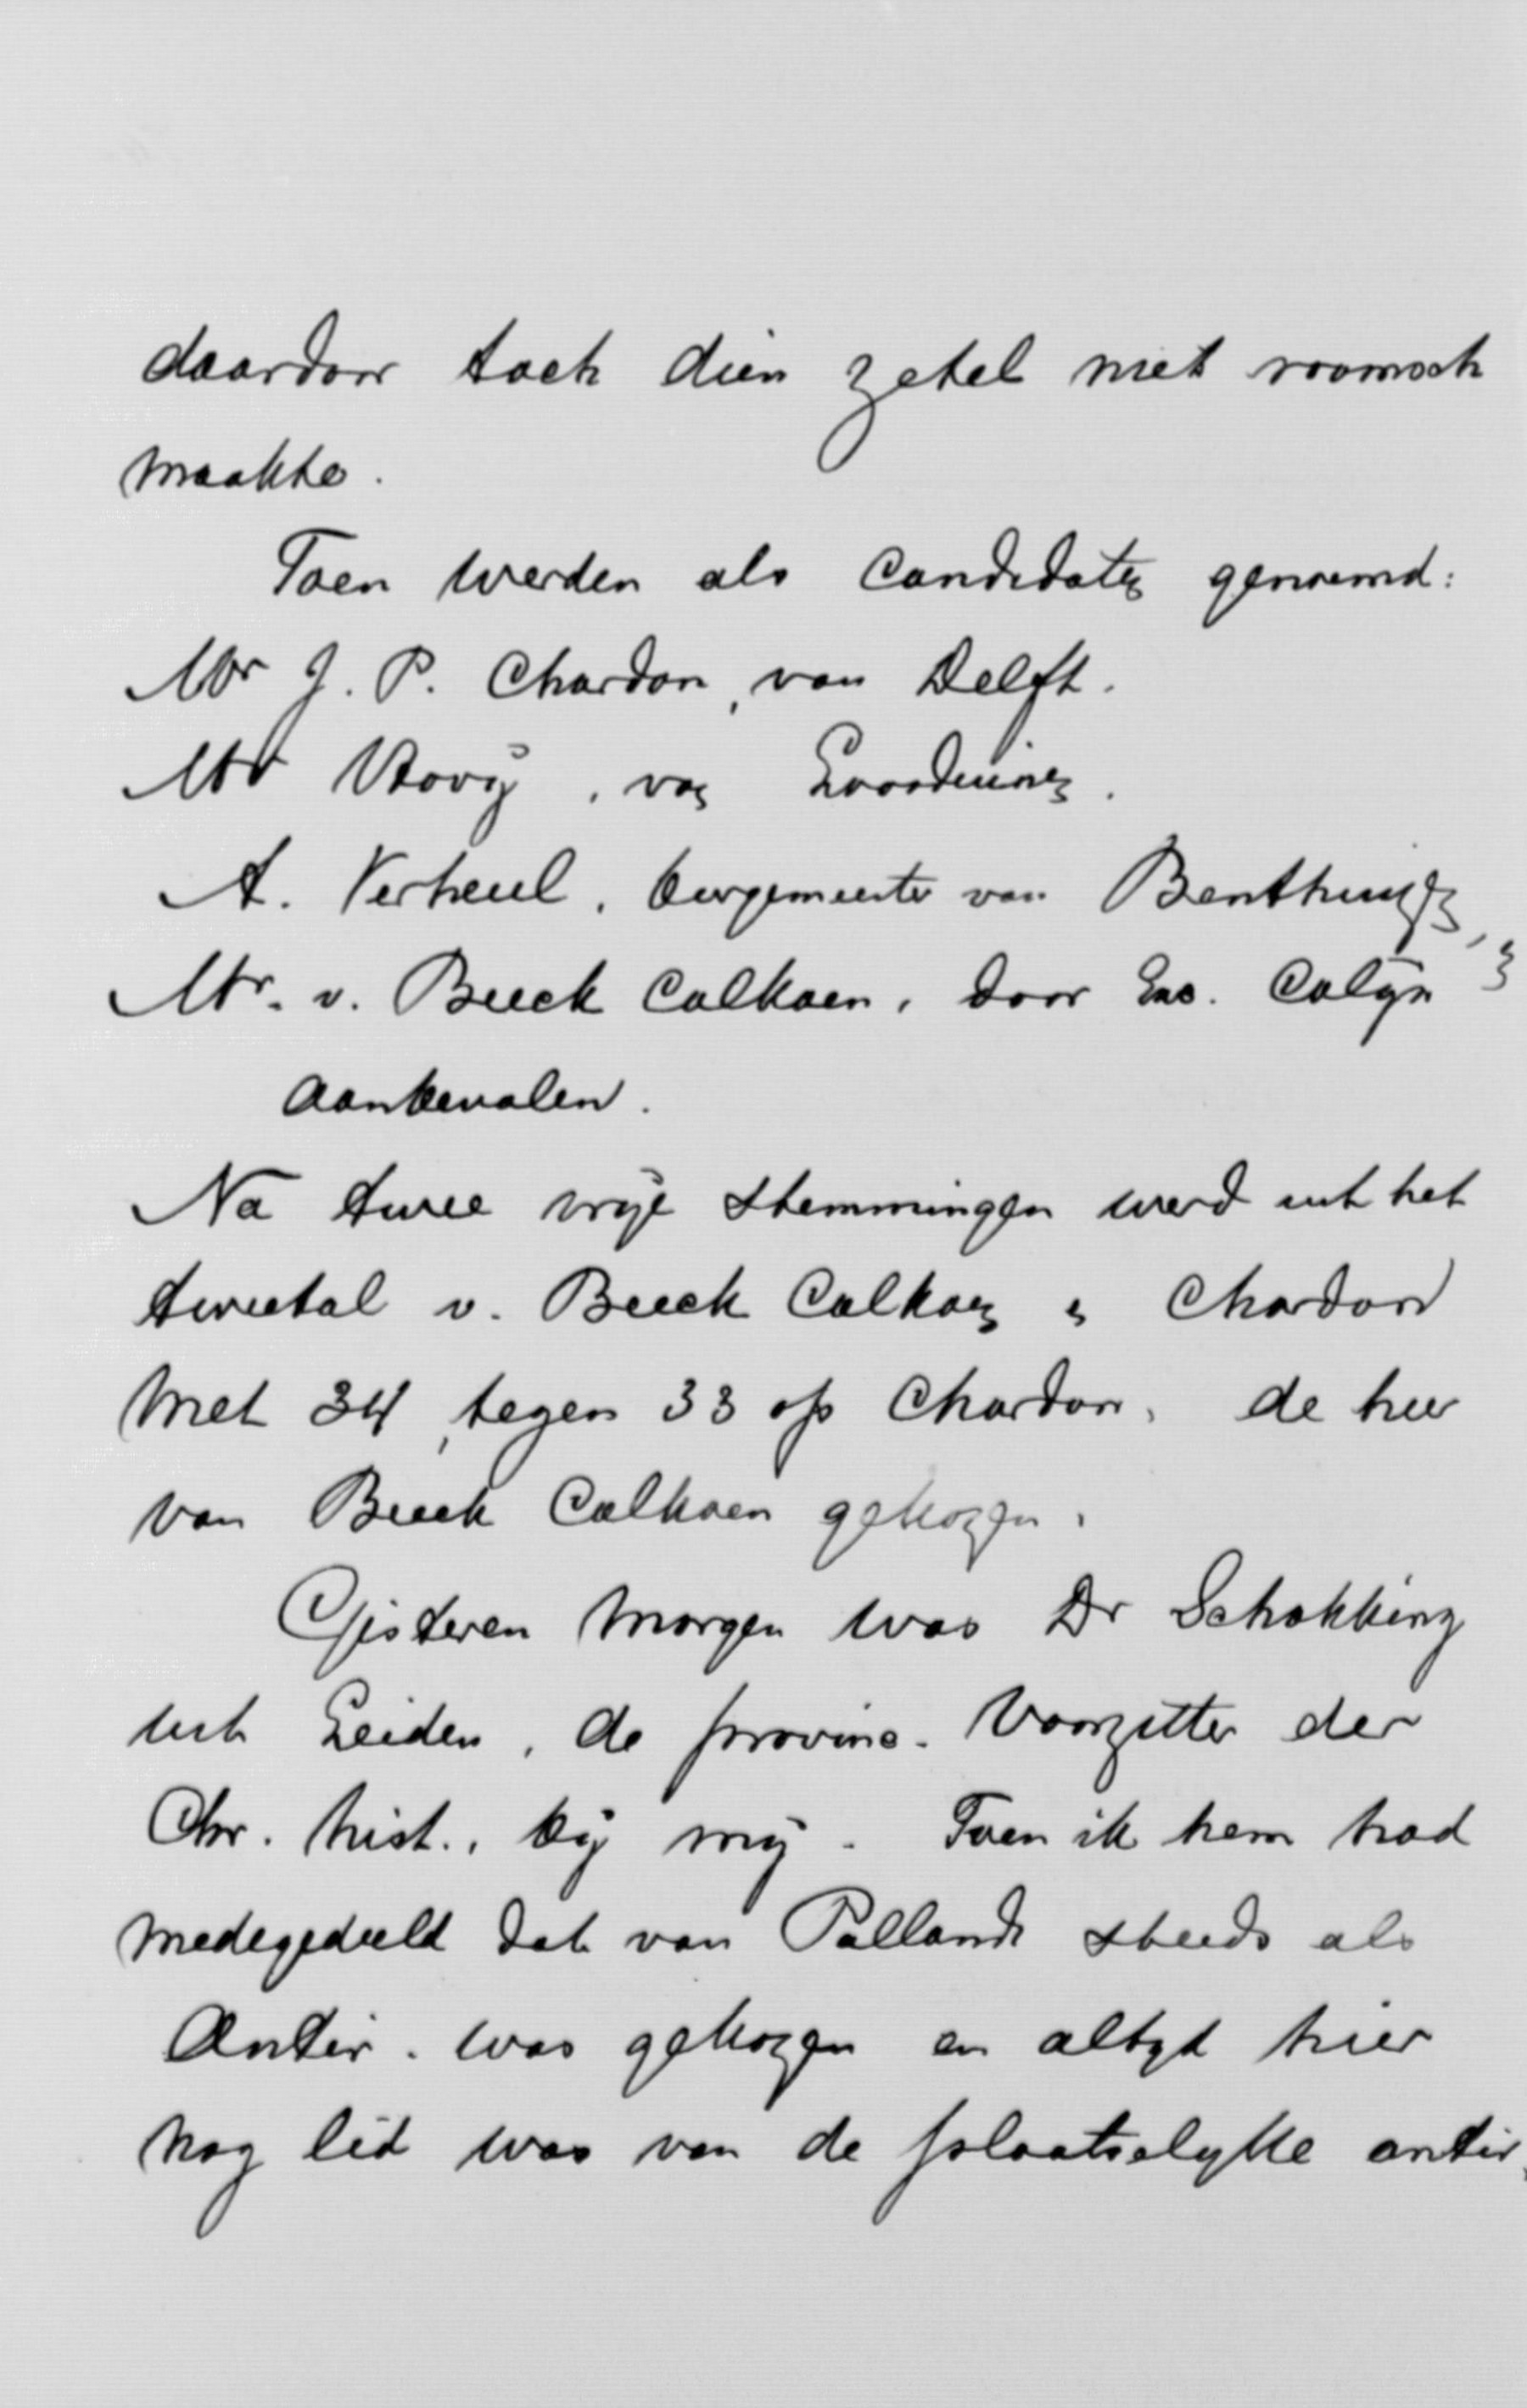 daardoor toch dien zetel niet roomsch
maakte.
Toen werden als candidaten genoemd:
Mr J. P. Chardon, van Delft.
Mr , van Loosduinen.
A. Verheul, burgemeester van Benthuizen, en
Mr. v. Beeck Calkoen, door Exc. Colijn
aanbevolen.
Na twee vrije stemmingen werd uit het
tweetal v. Beeck Calkoen en Chardon
met 34, tegen 33 op Chardon, de heer
van Beeck Calkoen gekozen.
Gisteren morgen was Dr Schokking
uit Leiden, de provinc. voorzitter der
Chr. hist., bij mij. Toen ik hem had
medegedeeld dat van Pallandt steeds als
Antir. was gekozen en altijd hier
nog lid was van de plaatselijke antir.